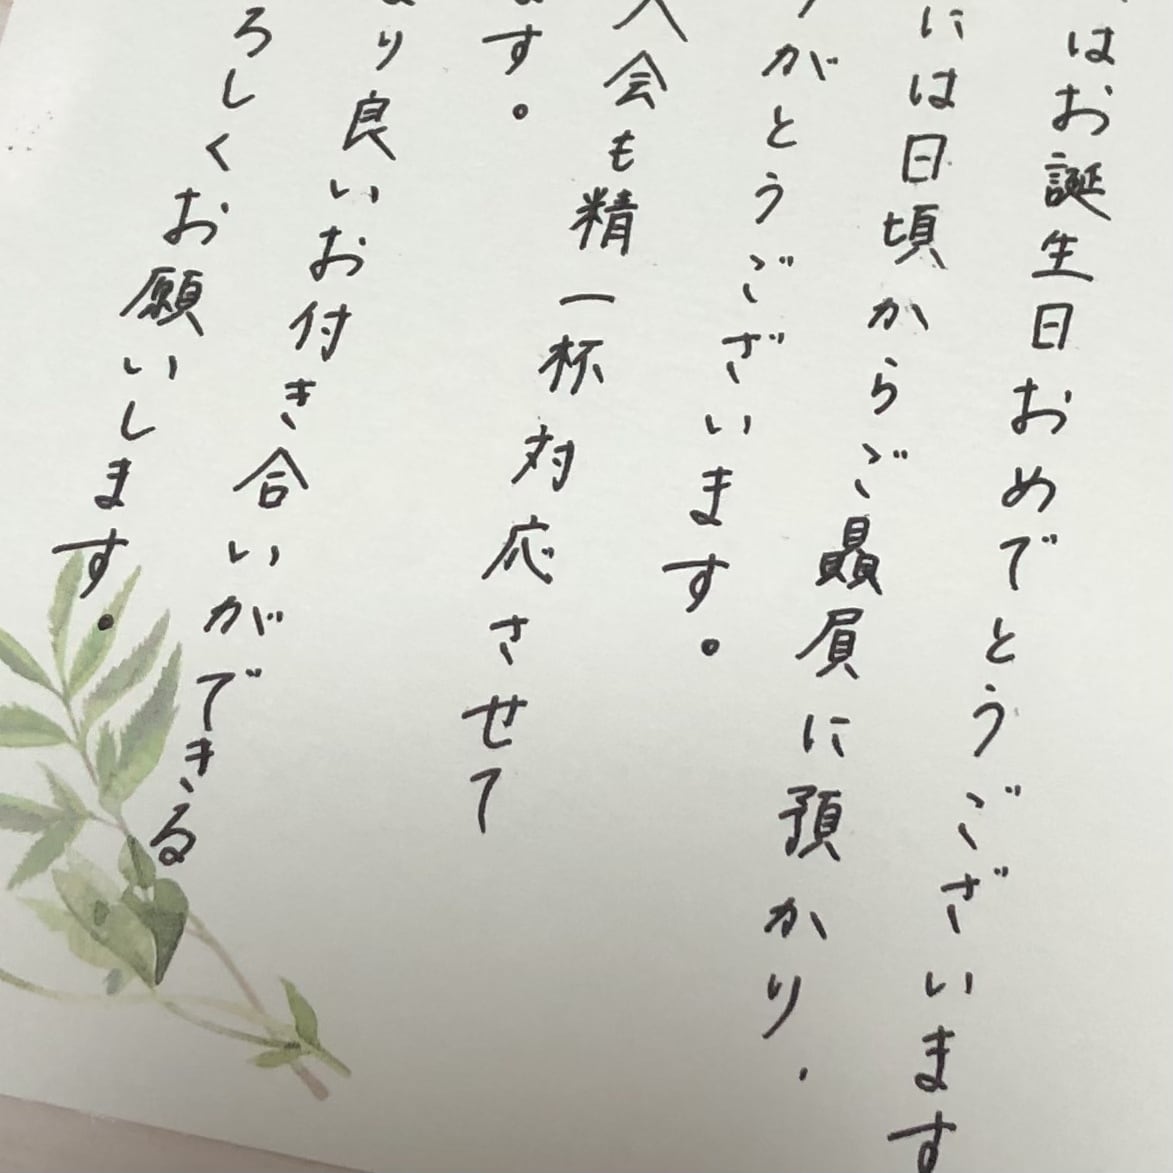 はお誕生日おめでとうございます
には日頃からご贔屓に預かり、
りがとうございます。
入会も精一杯対応させて
ます。
より良いお付き合いができる
ろしくお願いします。